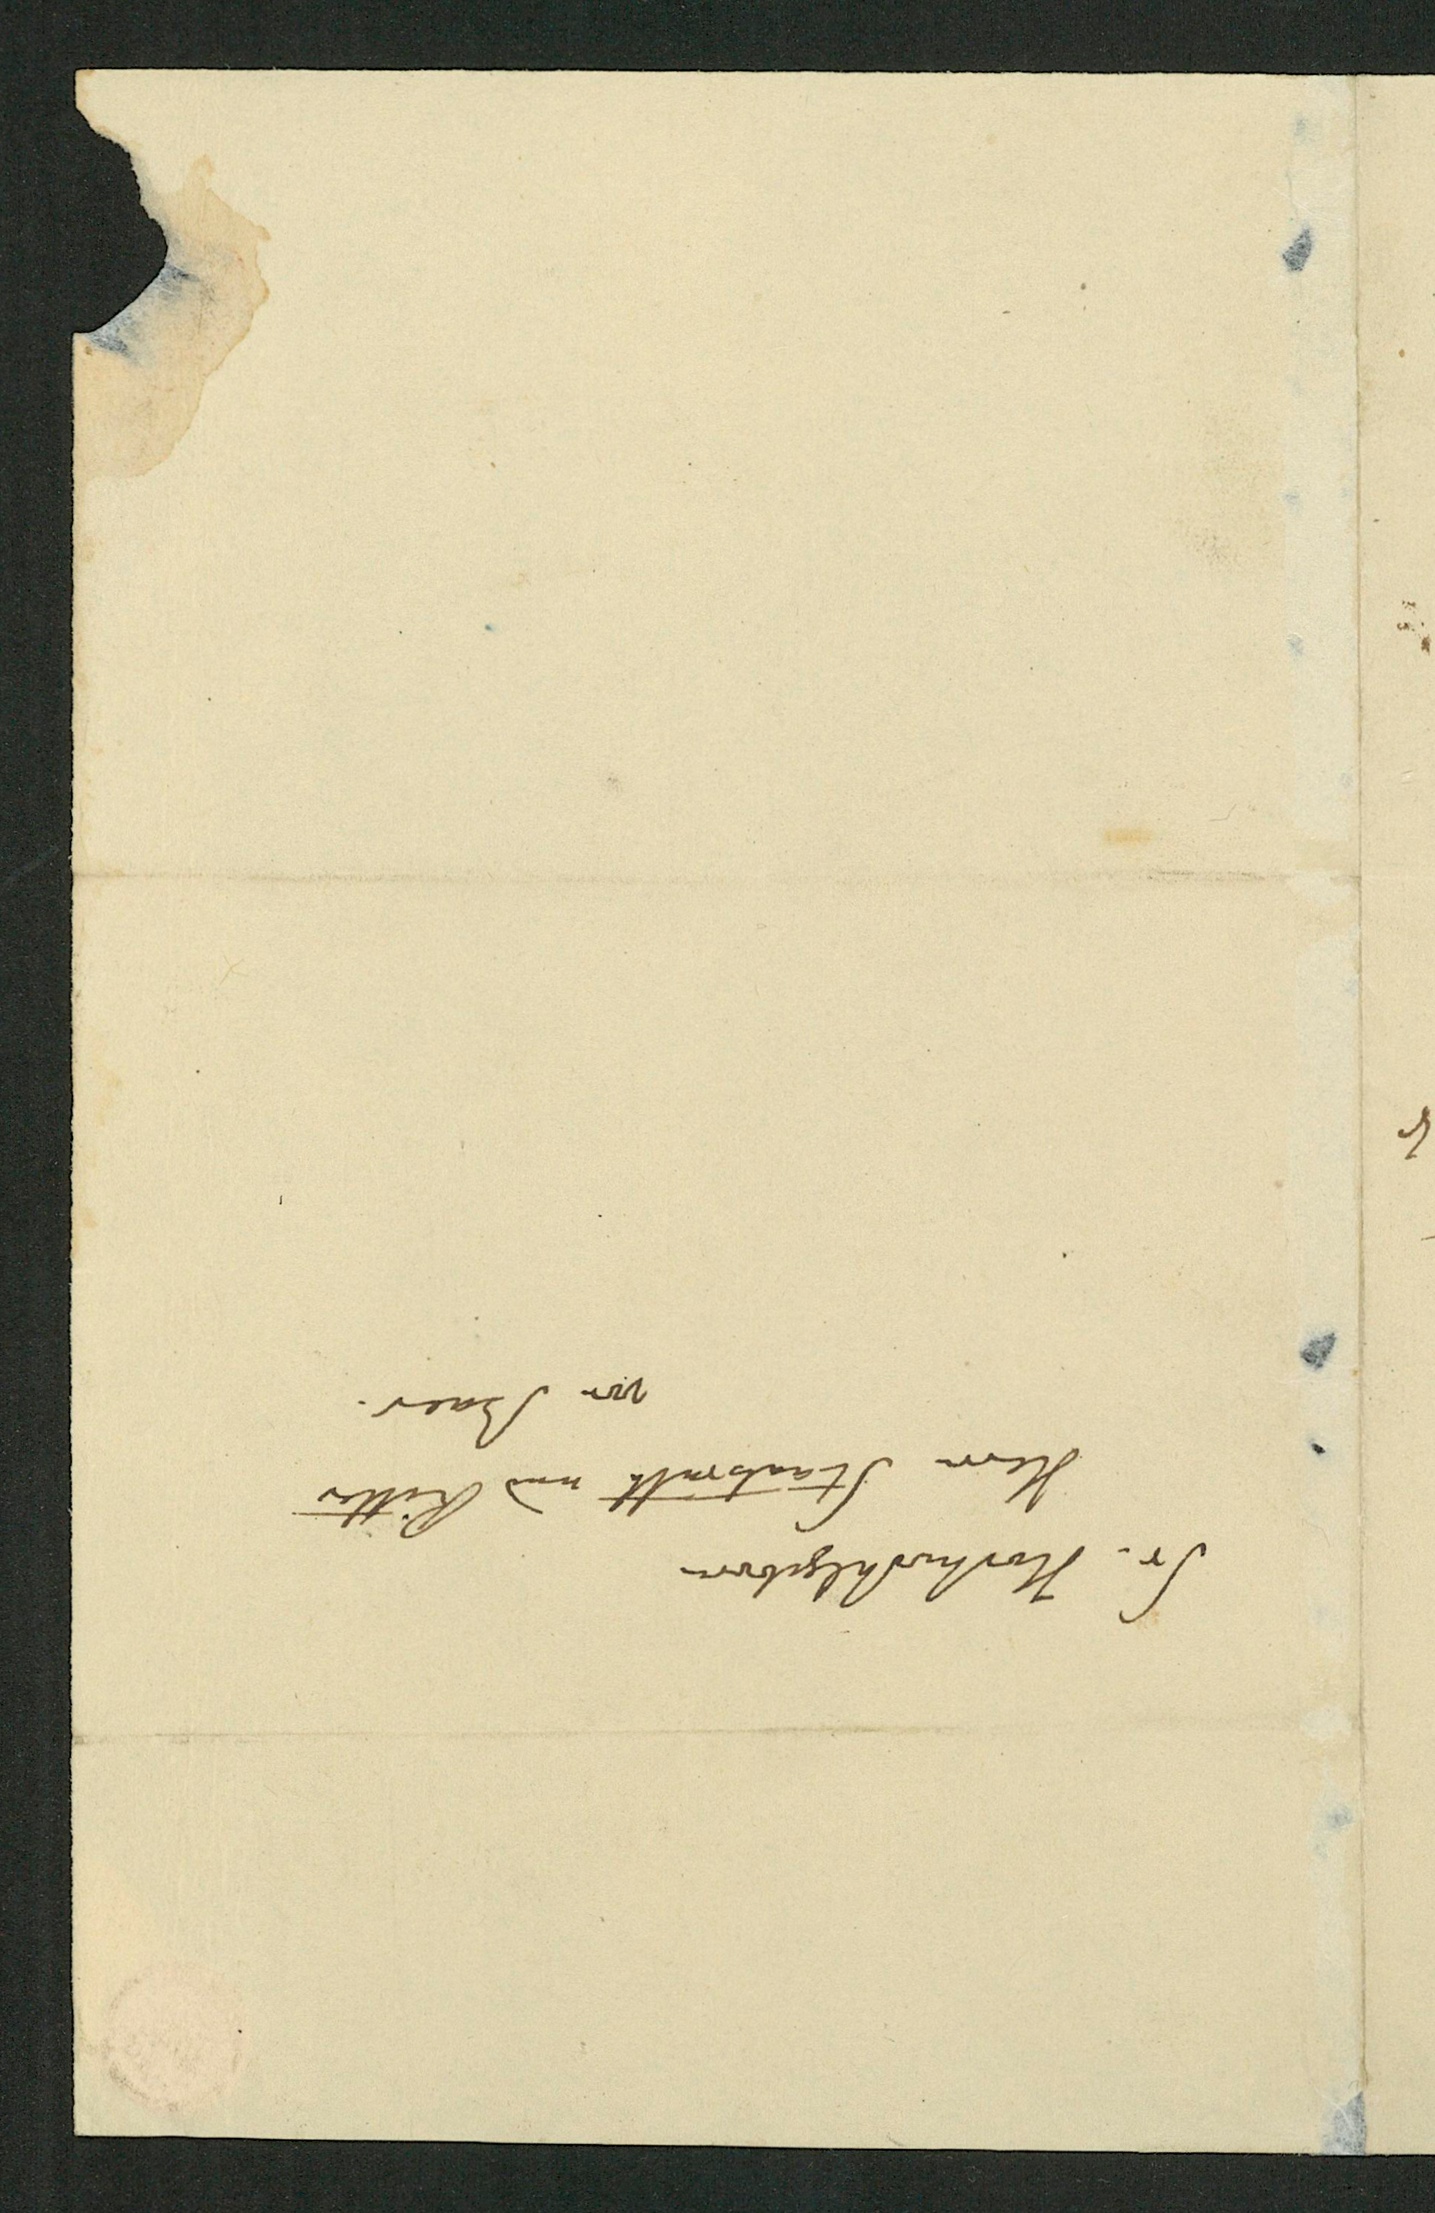 Sr. Hochwohlgeboren
Herrn Staatsrath und Ritter
von Baer.